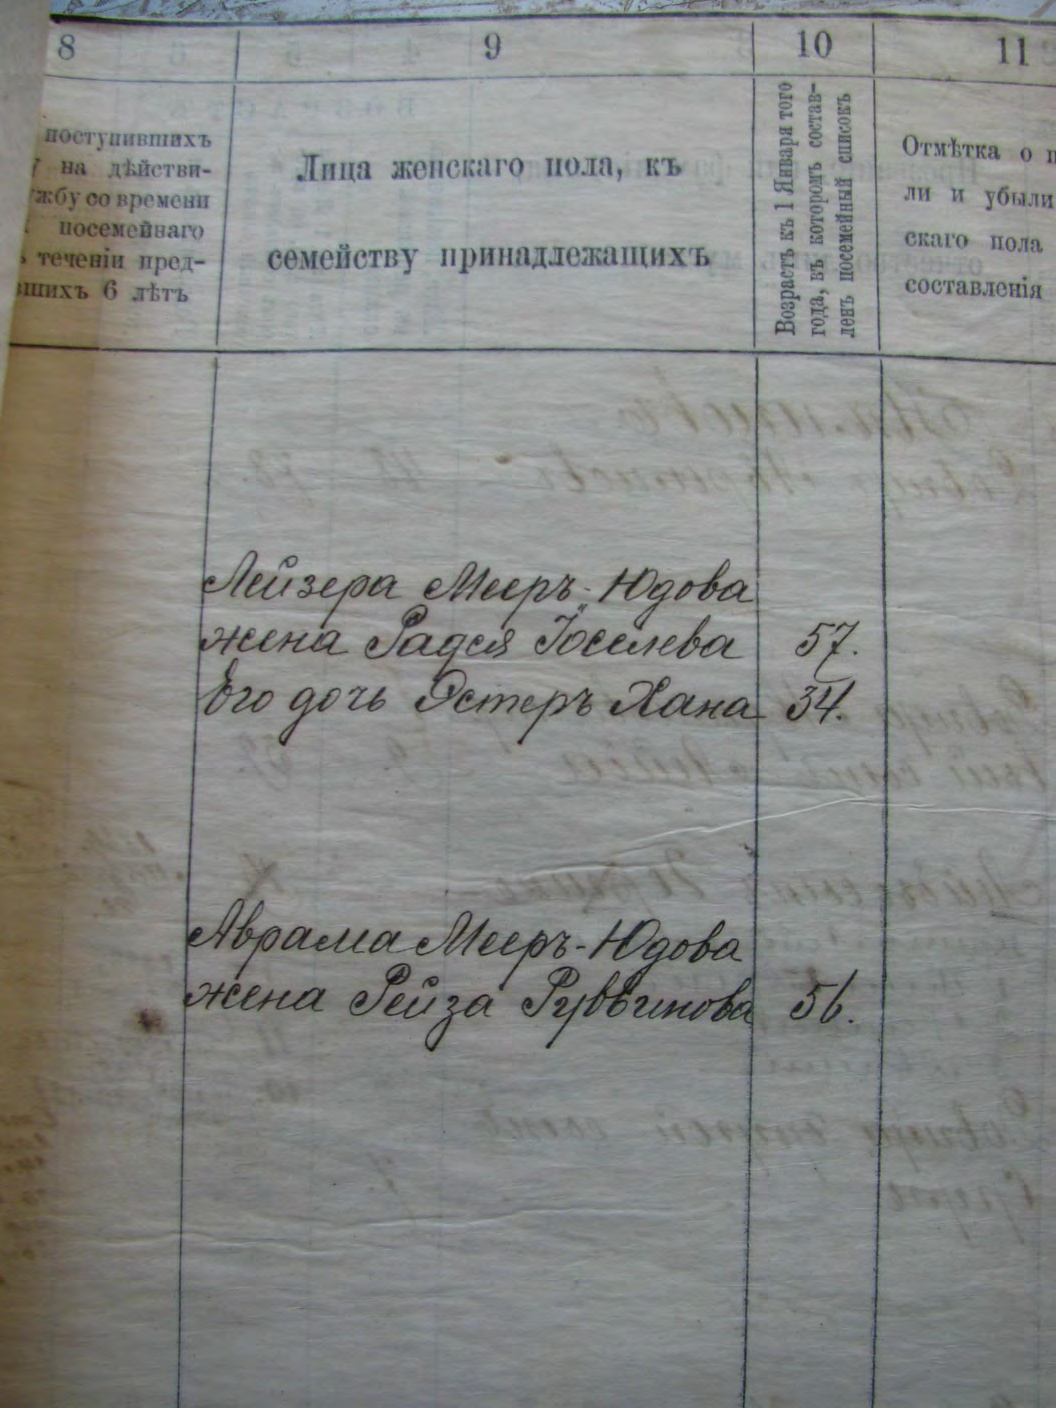 8 9 10 11
поступившихъ
на дѣйстви-
жбу со времени
посемейнаго
теченіи пред-
шихъ 6 лѣтъ
Лица женскаго пола, къ
семейству принадлежащихъ
Возрастъ къ 1 Января того
года, въ которомъ состав-
ленъ посемейный списокъ
Отмѣтка о п
ли и убыли
скаго пола
составленія
Лейзера Мееръ-Юдова
жена Радся Іоселева 57.
Его дочь Эстеръ Хана 34.
Аврама Мееръ-Юдова
жена Рейза Рувѣинова 56.